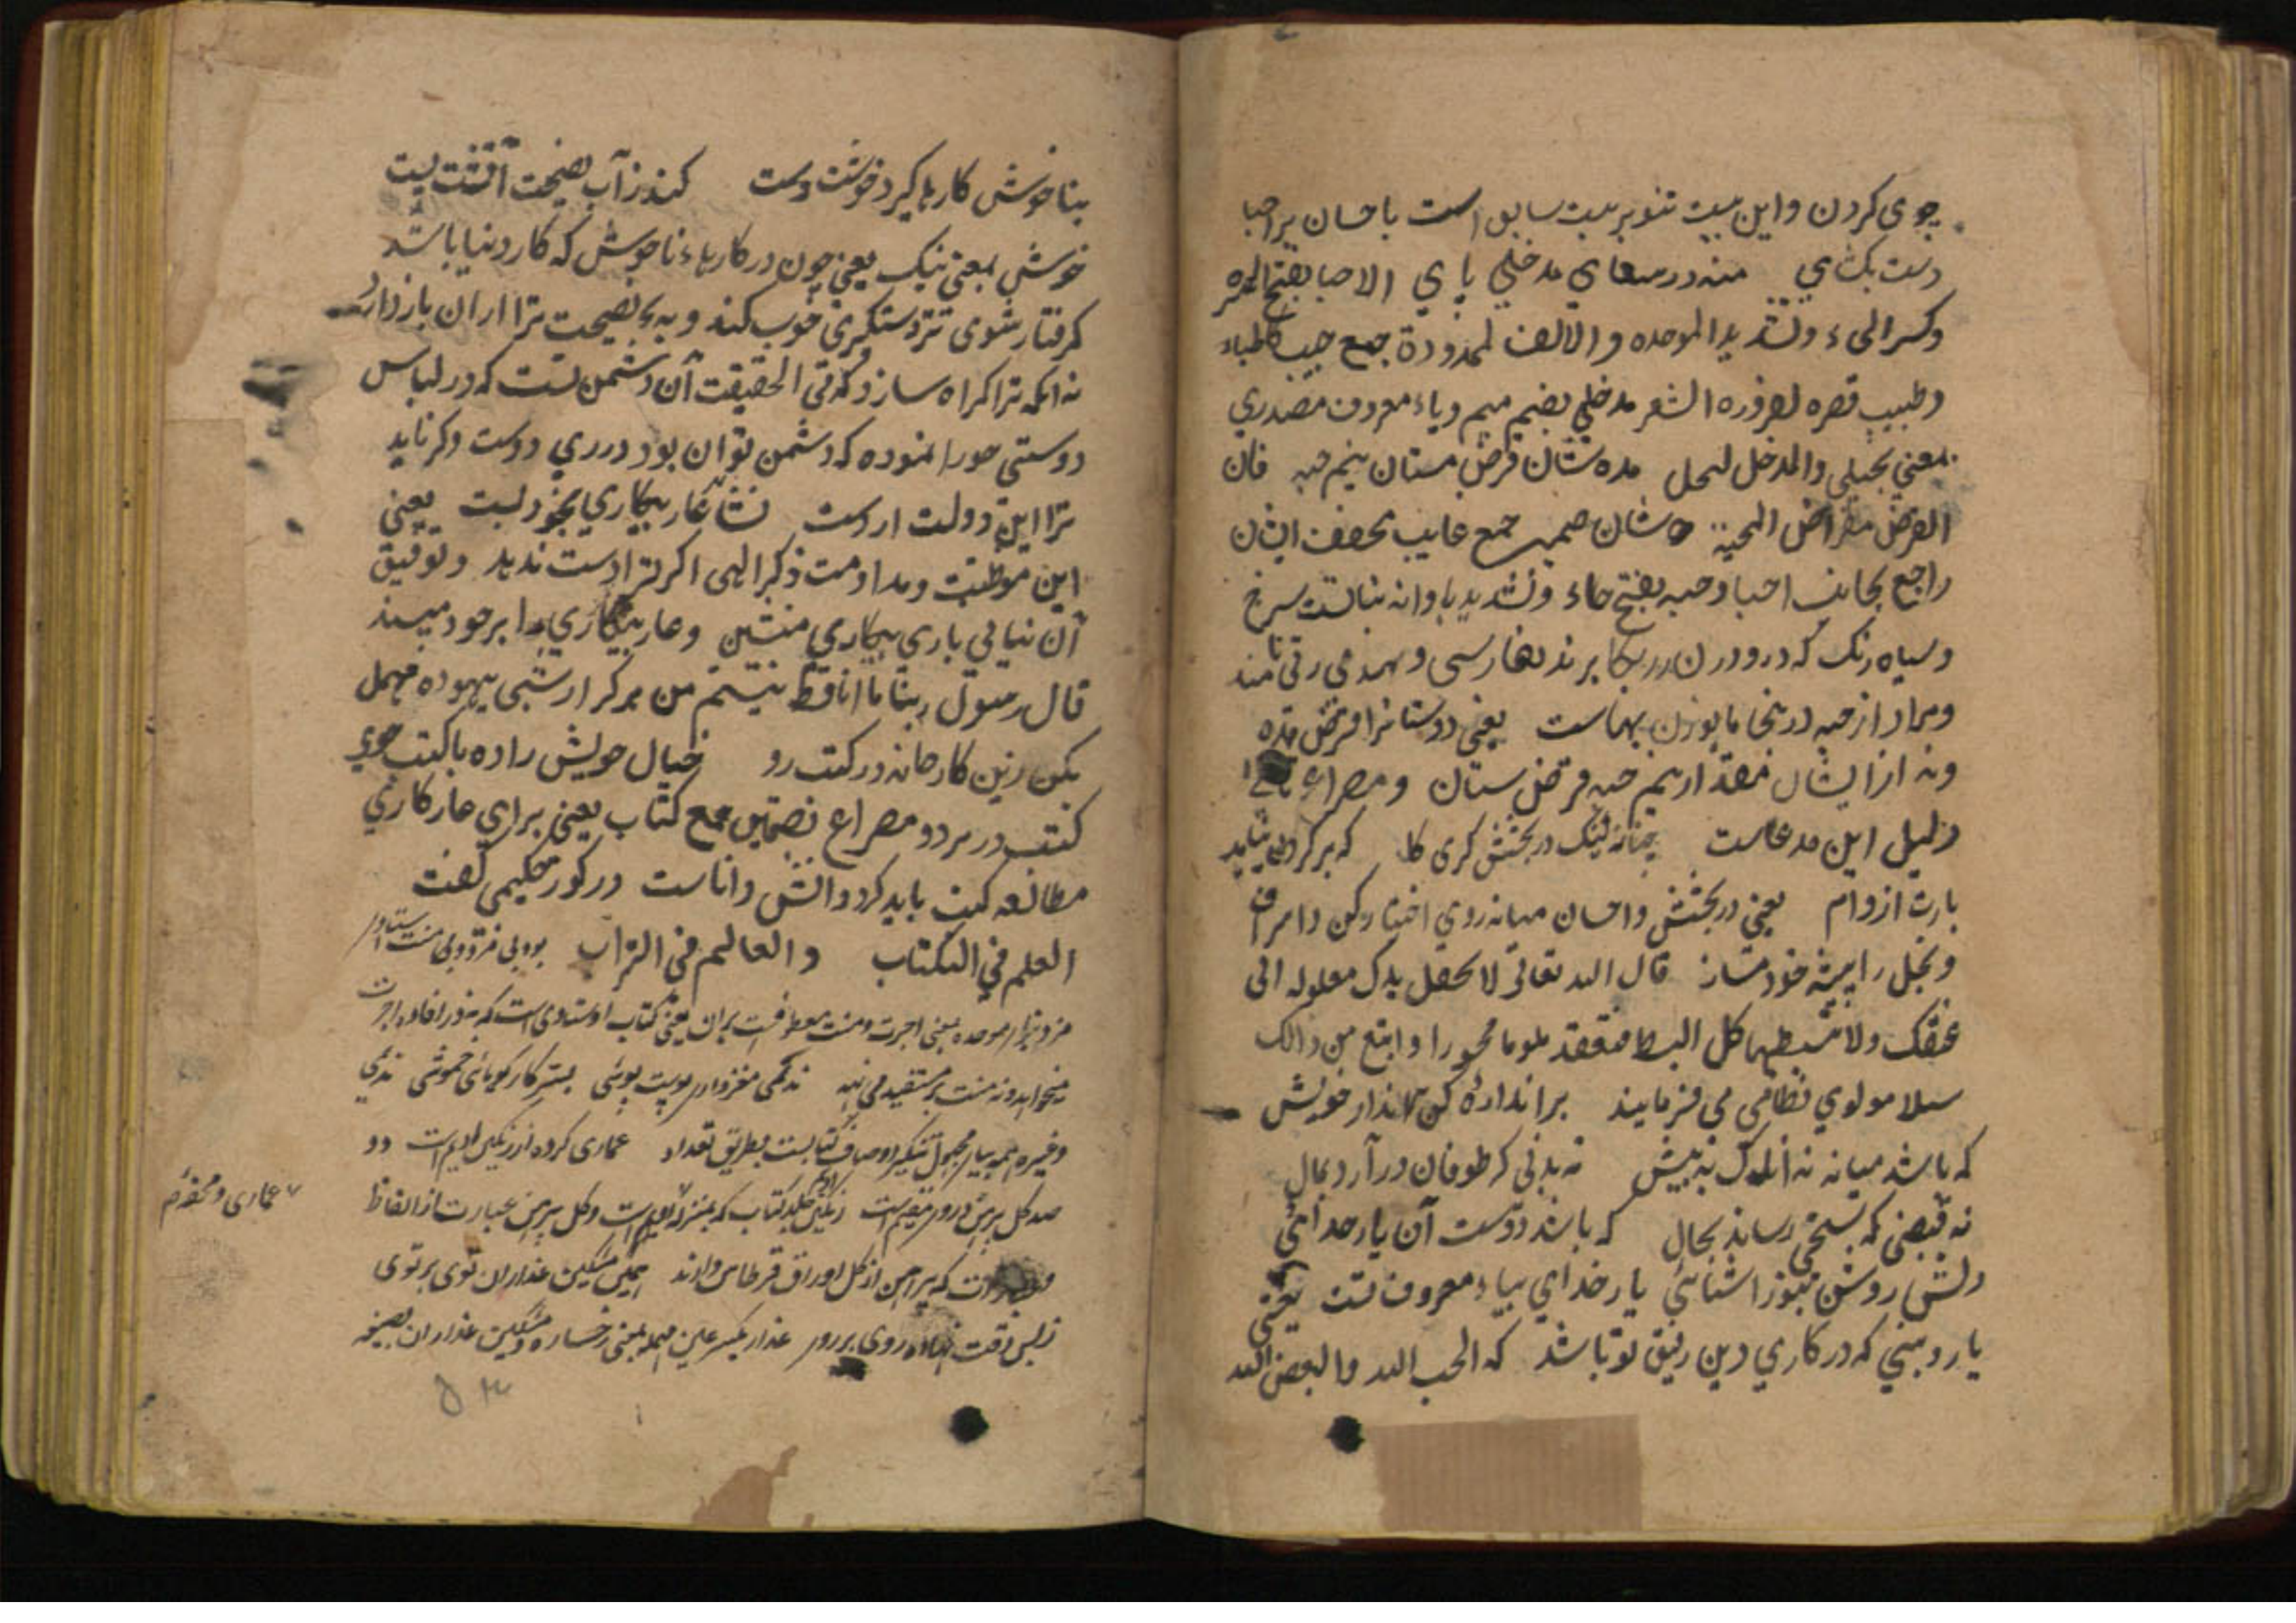 جوی کردن و این بیت تنویر بیت سابق است باحسان بر احبا
دست بکشای منه در سفای مدخلی پای الاحبا بفتح الهمزه
وکسر الحاء و تشدید الموحده و الالف الممدودة جمع حبیب کاطباء
وطبیب قصره لضرورة الشعر مدخلی بضم میم ویاء معروف مصدری
بمعنی بخیلی والمدخل البخیل مده شان قرض مستان نیم حبه فان
القرض مقراض المحبة شان ضمیر جمع غایب مخفف ایشان
راجع بجانب احبا وحبه بفتح حاء و تشدید با دانه نباتست سرخ
وسیاه رنک که در وزن زر بکار برند بفارسی وبهندی رتی نامند
ومراد از حبه درینجا با بوزن بهاست یعنی دوستانرا قرض مده
ونه از ایشان مقدار نیم حبه قرض ستان و مصراع
دلیل این مدعاست چنان نیک در بخشش کری کار که بر کردن نیاید
بارت از وام یعنی در بخشش واحسان میانه روی اختیار کن و اسراف
و بخل را پیشه خود مساز قال الله تعالی لا تجعل یدک مغلولة الی
عنقک ولا تبسطها کل البسط فتقعد ملوما محسورا وابتغ بین ذالک
سبیلا مولوی نظامی می فرمایند بر اندازه کن انداز خویش
که باشد میانه نه اندک نه بیش نه بذلی که طوفان در آرد بمال
نه قبضی که سختی رساند بحال که باشد دوست آن یار خدائی
دلش روشن بنور اشنائی یار خدای بیاء معروف نسبت یعنی
یار دینی که در کاری دین رفیق تو باشد که الحب لله والبغض لله
بنا خوش کارها کیرد خوشت دست کند ز آب نصیحت آتشت پست
خوش بمعنی نیک یعنی چون در کارهاء ناخوش که کار دنیا باشد
کرفتار شوی ترا دستکیری خوب کند و به نصیحت ترا از ان باز دارد
نه انکه ترا کمراه سازد که فی الحقیقت آن دشمن تست که در لباس
دوستی خود را نموده که دشمن توان بود در زی دوست وکر ناید
ترا این دولت از دست نشاغار بیکاری بخود بست یعنی
این موظبت و مداومت ذکر الهی اکر ترا دست ندهد و توفیق
آن نیابی باری بیکاری منشین وعار بیکاری را بر خود مپسند
قال رسول ربنا ما انا قط نیستم من هرکز از شی بیهوده مهمل
بکن زین کارخانه در کتب رو خیال خویش را ده با کتب خوی
کتب در هر دو مصراع بضمتین جمع کتاب یعنی برای عار کاری
مطالعه کتب باید کرد و اتش داناست در کور حکیمی کفت
العلم فی الکتاب والعالم فی التراب بود بی مزد و بی منت استاد
مزد بزاء موحده بمعنی اجرت ومنت معطوفست بران یعنی کتاب اوستادی است که نه در افاده اجرت
میخواهد و نه منت بر مستفید می نهد ندیمی مغز داری پوست پوشی بستر کار کویائی خموشی ندیمی
وغیره همه بیاء مجهول تنکیر اوصاف کتابست بطریق تعداد عماری کرده از رنکین ادیم است دو
صد کل پیرهن در وی مقیم است رنکین جلد کتاب که بمنزله ادیم است وکل پیرهن عبارت از الفاظ
که پیراهن از کل اوراق قرطاس دارند همه مشکین عذاران توی بر توی
ز بس رقت نهاده روی بر روی عذار بکسر عین مهمله بمعنی رخساره ومشکین عذاران بصیغه
عماری ومخفف